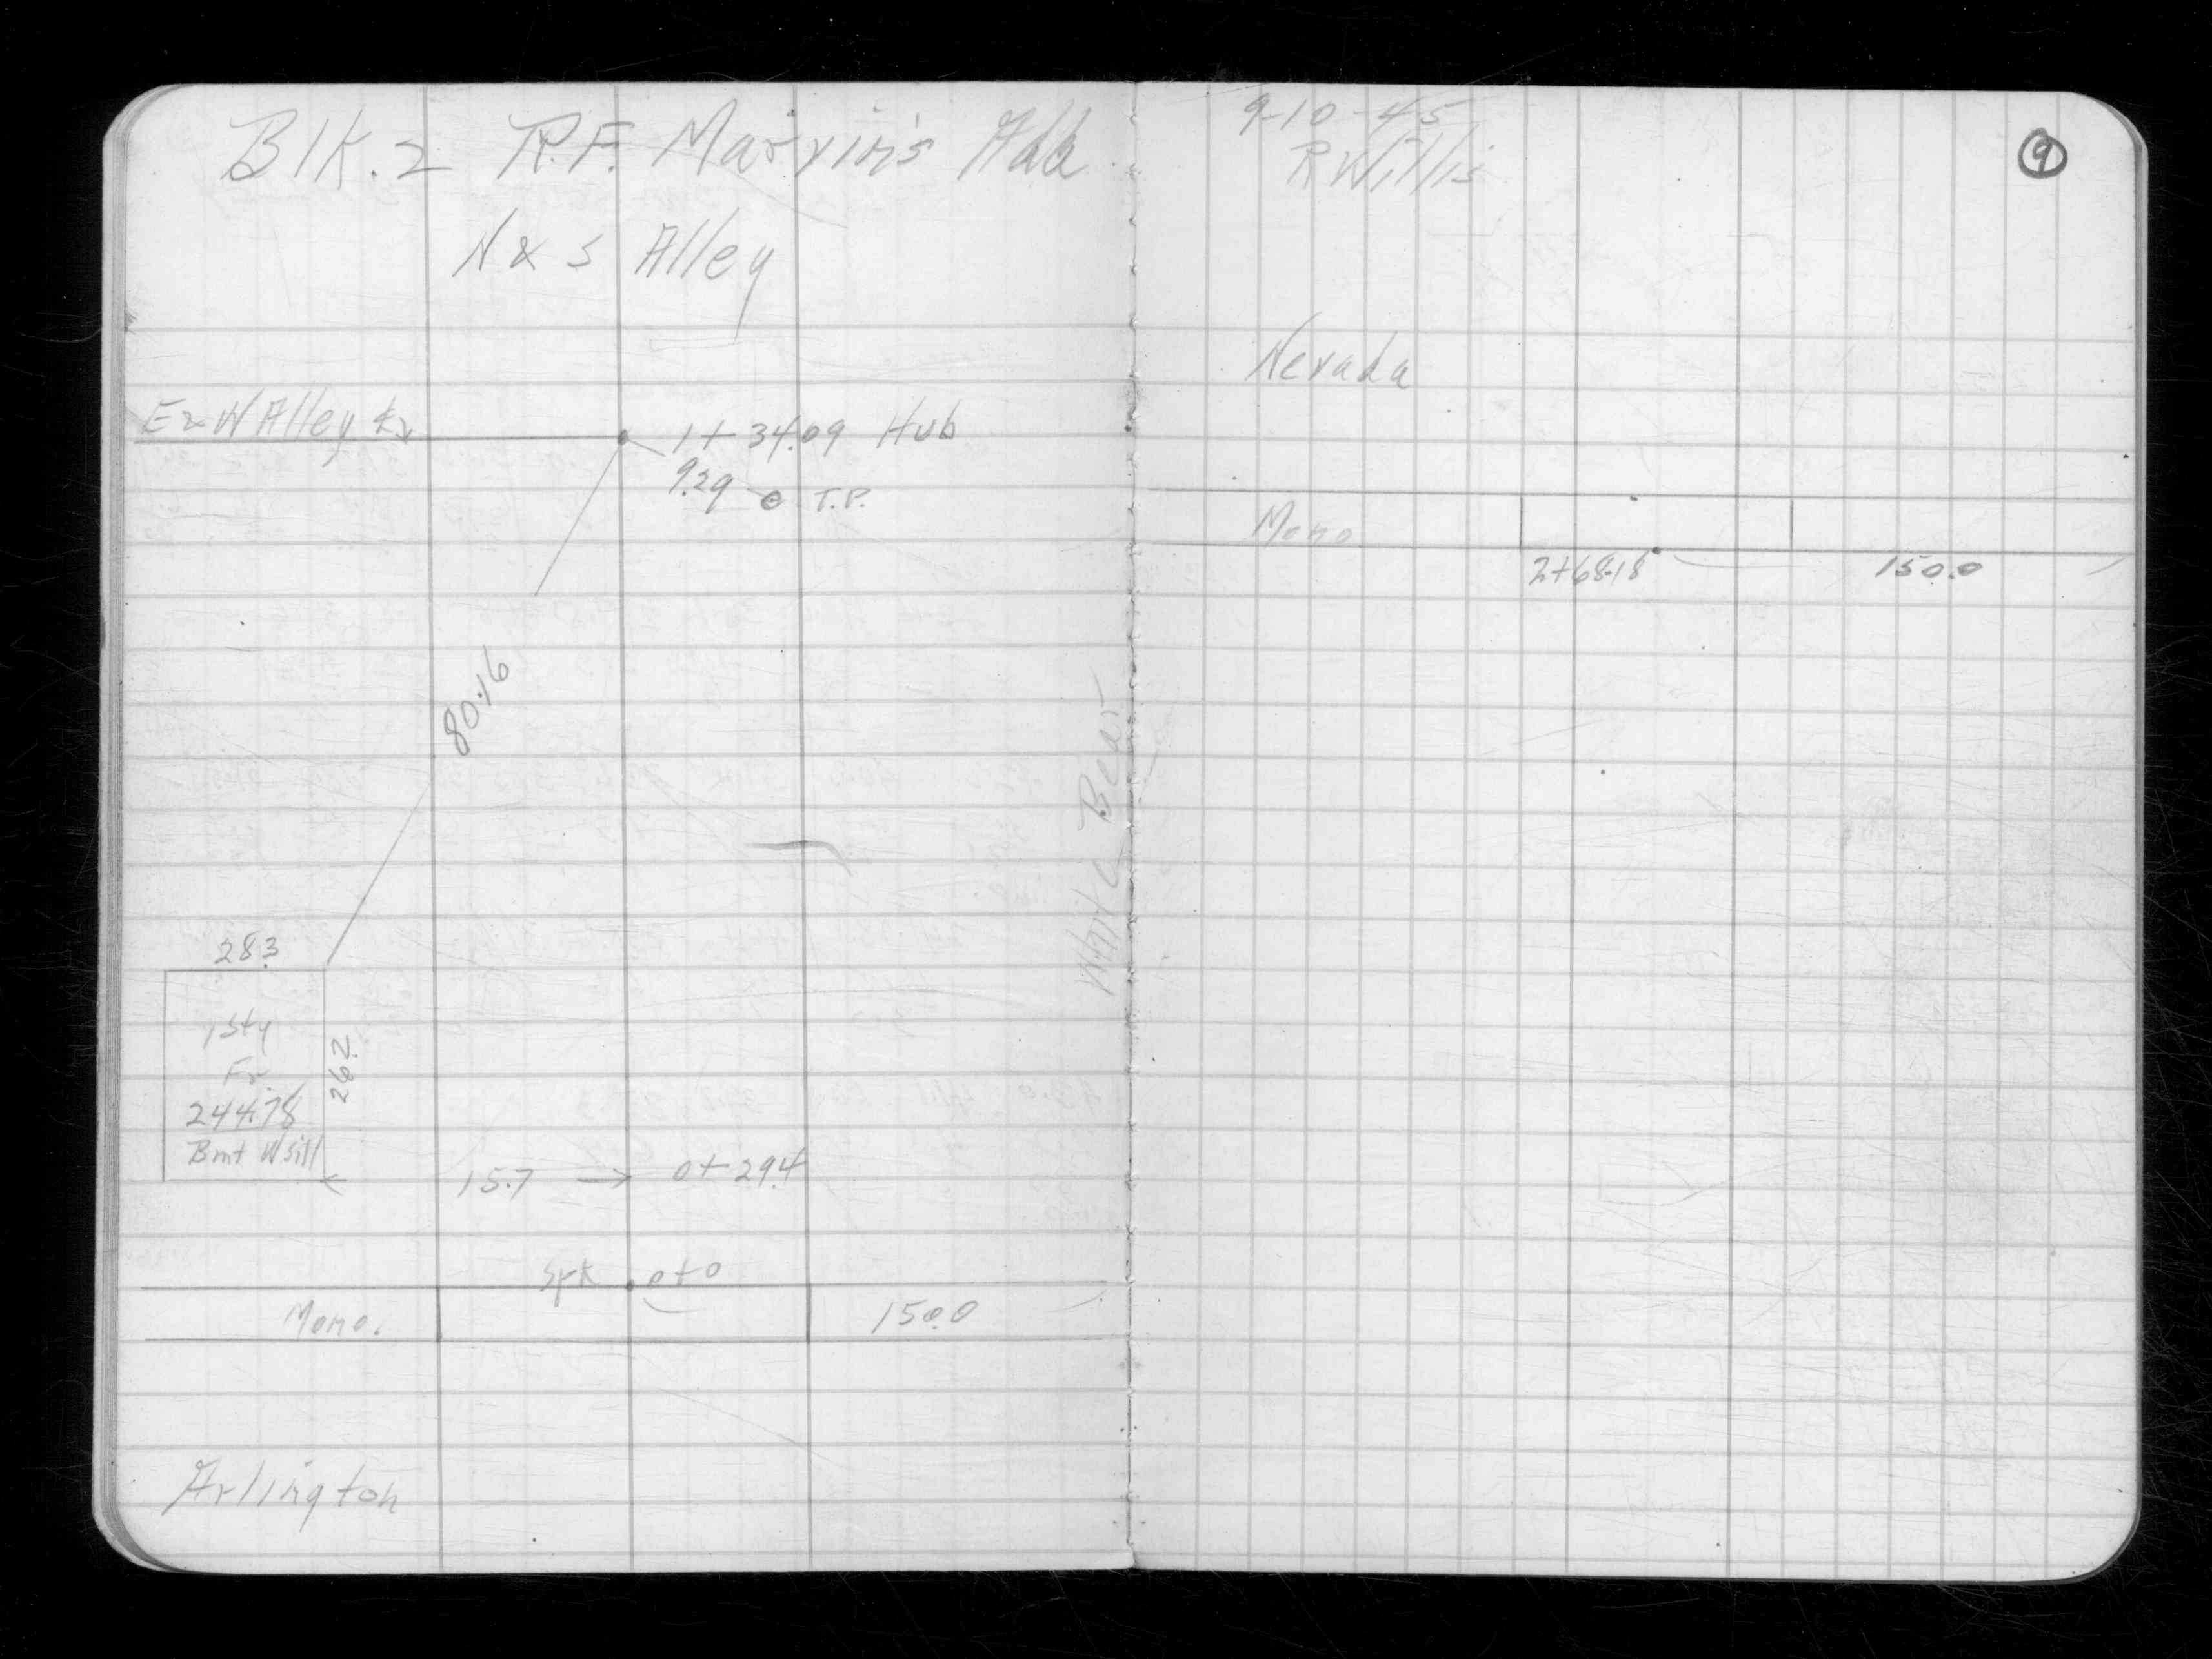 Blk. 2 R.F. Marvin's Add.
N & S Alley
E & W Alley
1+34.09 Hub
9.29 T.P.
80.16
28.3
1 Sty
Fr.
244.78
Bmt W sill
26.2
15.7 → 0+29.4
Spk 0+0
Mono.
150.0
Arlington
White Bear
9-10-45
R Willis
9
Nevada
Mono
2+68.18
150.0